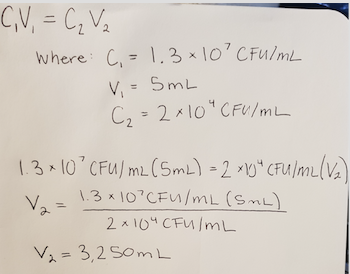 C₁V₁ = C₂V₂
Where: C₁ = 1.3 × 10⁷ CFU/mL
V₁ = 5mL
C₂ = 2 × 10⁴ CFU/mL
1.3 × 10⁷ CFU/mL (5mL) = 2 × 10⁴ CFU/mL (V₂)
V₂ = 1.3 × 10⁷ CFU/mL (5mL)
2 × 10⁴ CFU/mL
V₂ = 3,250mL